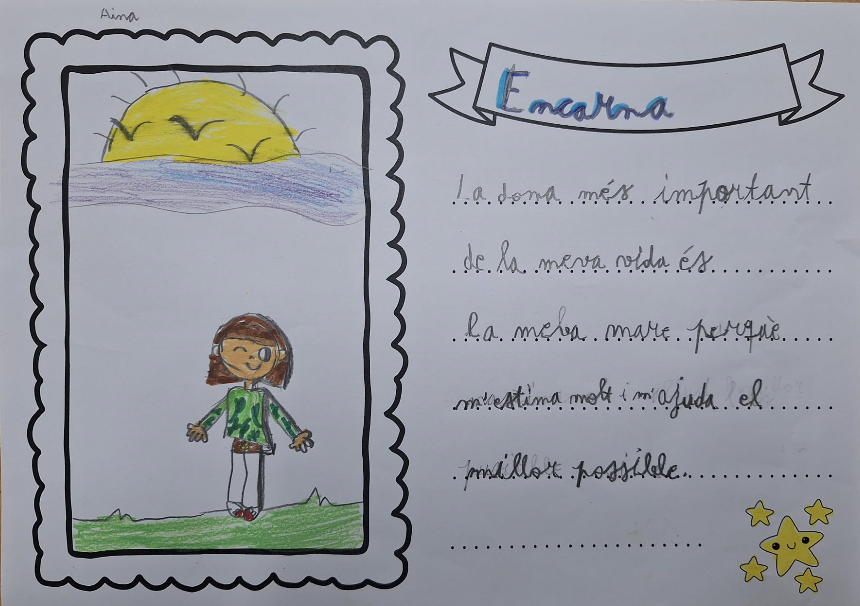 Aina
Encarna
La dona més important
de la meva vida és
la meva mare perquè
m'estima molt i m'ajuda el
millor possible.